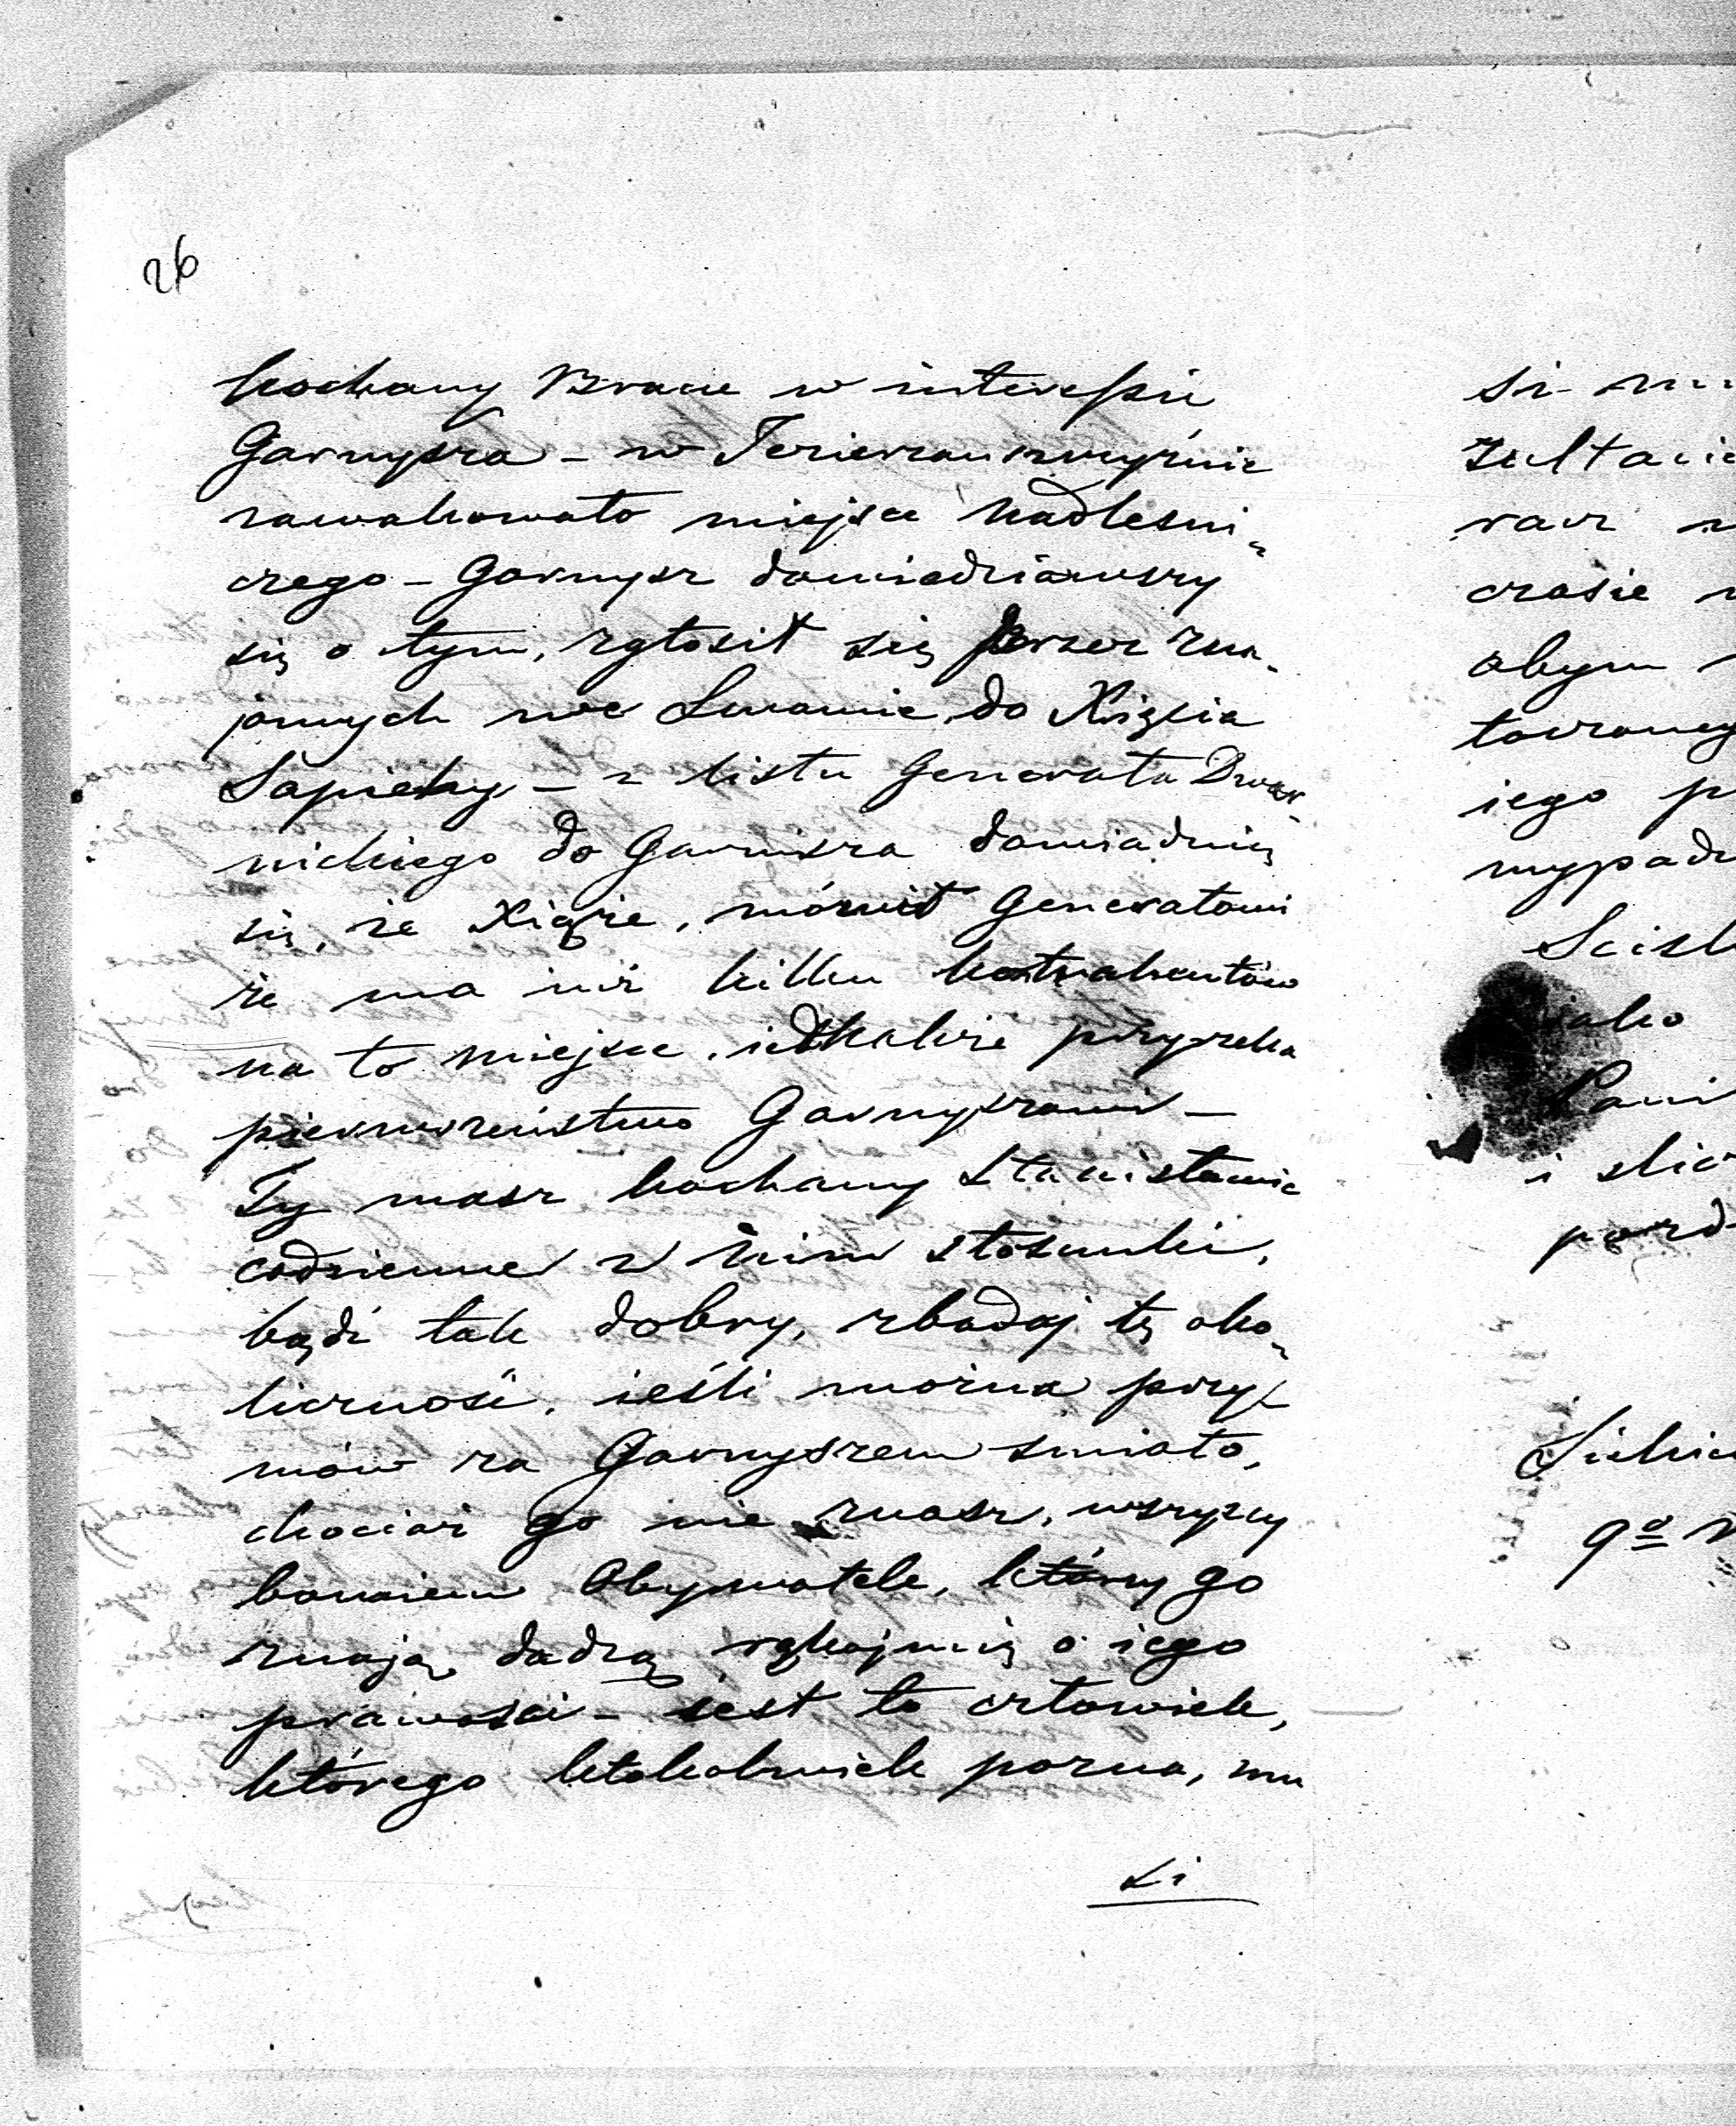 26
kochany Bracie w interessie
Garnysza - w
zawakowało miejsce Nadleśni-
czego - Garnysz dowiedziawszy
się o tym, zgłosił się przez zna-
jomych we Lwowie do Xięcia
Sapiehy - z listu Generała Dwer-
nickiego do Garnisza dowiaduię
się, że Xiąże, mówił Generałowi
że ma iuż kilku kontrahentów
na to miejsce, iednakże przyrzeka
pierwszeństwo Garnyszowi -
Ty masz kochany Stanisławie
codzienne z nim stosunki,
bądź tak dobry, zbadaj tę oko-
liczność, ieśli można przy
mów za Garnyszem śmiało,
chociaż go nie znasz, wszyscy
bowiem Obywatele, którzy go
znają, dadzą rękojmię o iego
prawości - iest to człowiek,
którego ktokolwiek pozna, mu
si
si mu
czasie
abym
iego